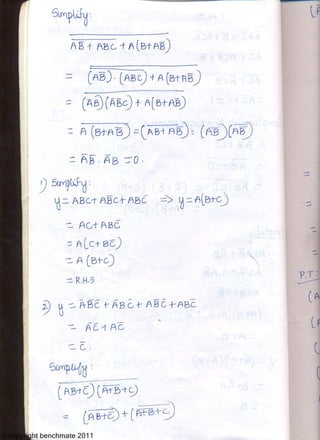 Simplify:
A̅B̅ + ABC + A(B+AB̅)
= (AB).(ABC) + A(B+AB)
= (AB)(ABC) + A(B+AB)
= A(B+AB) = (AB+AB) = (AB)(AB)
= AB. AB = 0.
1) Simplify:
y = ABC + AB̅C + ABC̅ => y = A(B+C)
= AC + ABC̅
= A(C+BC̅)
= A(B+C)
= R.H.S
2) y = A̅B̅C̅ + A̅BC̅ + AB̅C̅ + ABC̅
= A̅C̅ + AC̅
= C̅.
Simplify:
(AB+C̅)(A+B+C)
= (AB+C̅) + (A+B+C)
P.T
copyright benchmate 2011